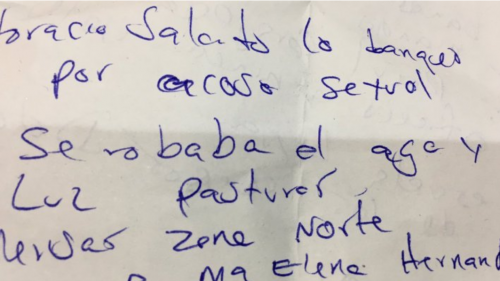 oracio Salcito lo banqueo
por acoso sexual
Se robaba el aga y
Luz pasturar
zona NORTE
Ma Elena Hernand